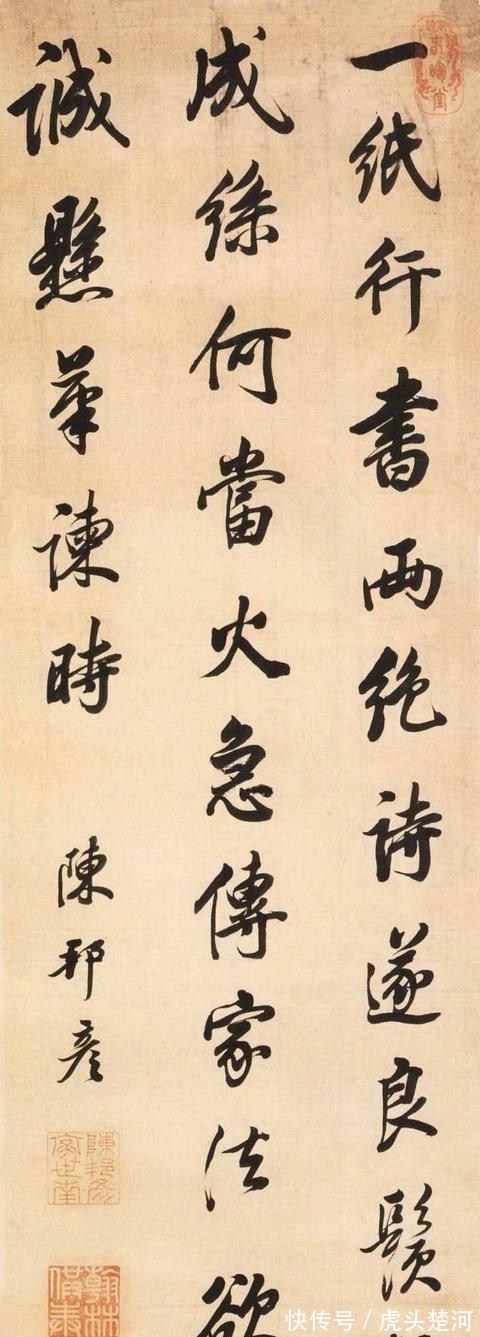 一紙行書兩絕詩遂良鬚
成絲何當火急傳家法欲
誠懸筆諫時
陳邦彥
快传号 / 虎头楚河